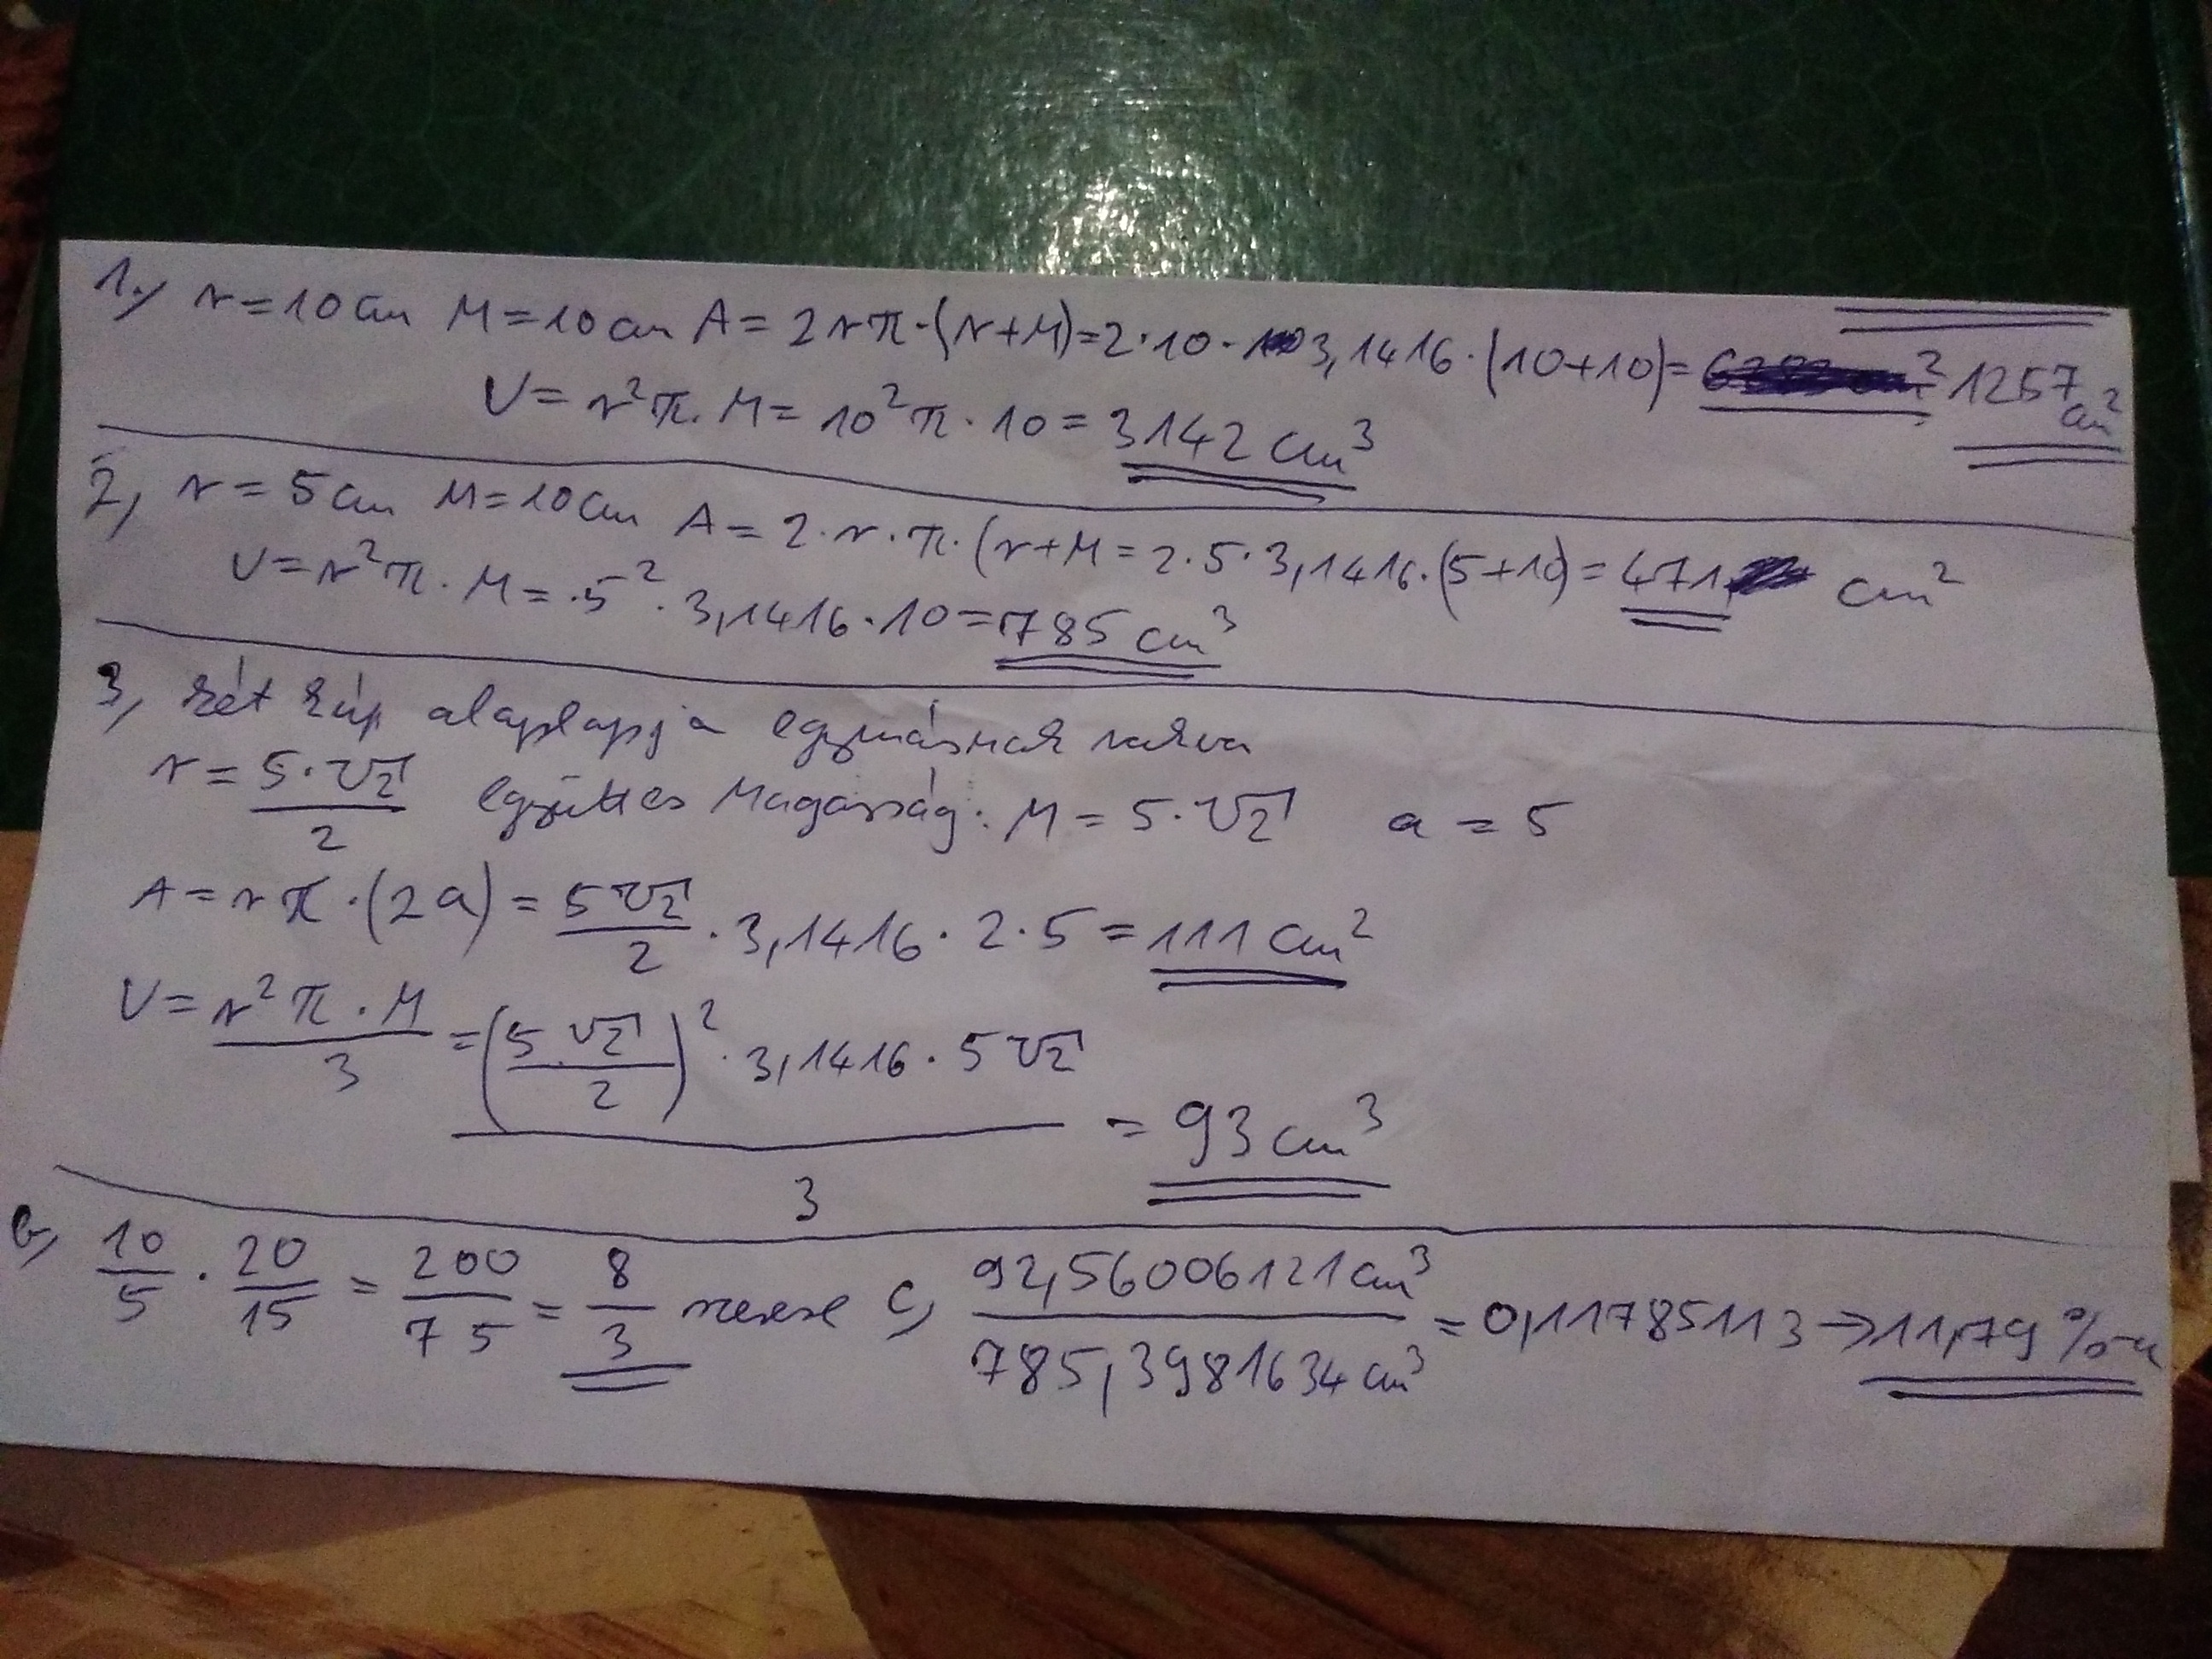 1.) r=10cm M=10cm A=2rπ·(r+M)=2·10·3,1416·(10+10)= 1257 cm²
V=r²π·M=10²π·10=3142 cm³
2, r=5cm M=10cm A=2·r·π·(r+M=2·5·3,1416·(5+10)=471 cm²
V=r²π·M=·5²·3,1416·10=785 cm³
3, két kúp alaplapja egymásnak rakva
r=5·√2/2 együttes Magasság: M=5·√2 a=5
A=rπ·(2a)=5√2/2·3,1416·2·5=111 cm²
V=r²π·M/3=(5·√2/2)²·3,1416·5√2/3=93 cm³
b, 10/5·20/15=200/75=8/3 c, 92,56006121cm³/785,3981634cm³=0,11785113→11,79%-a